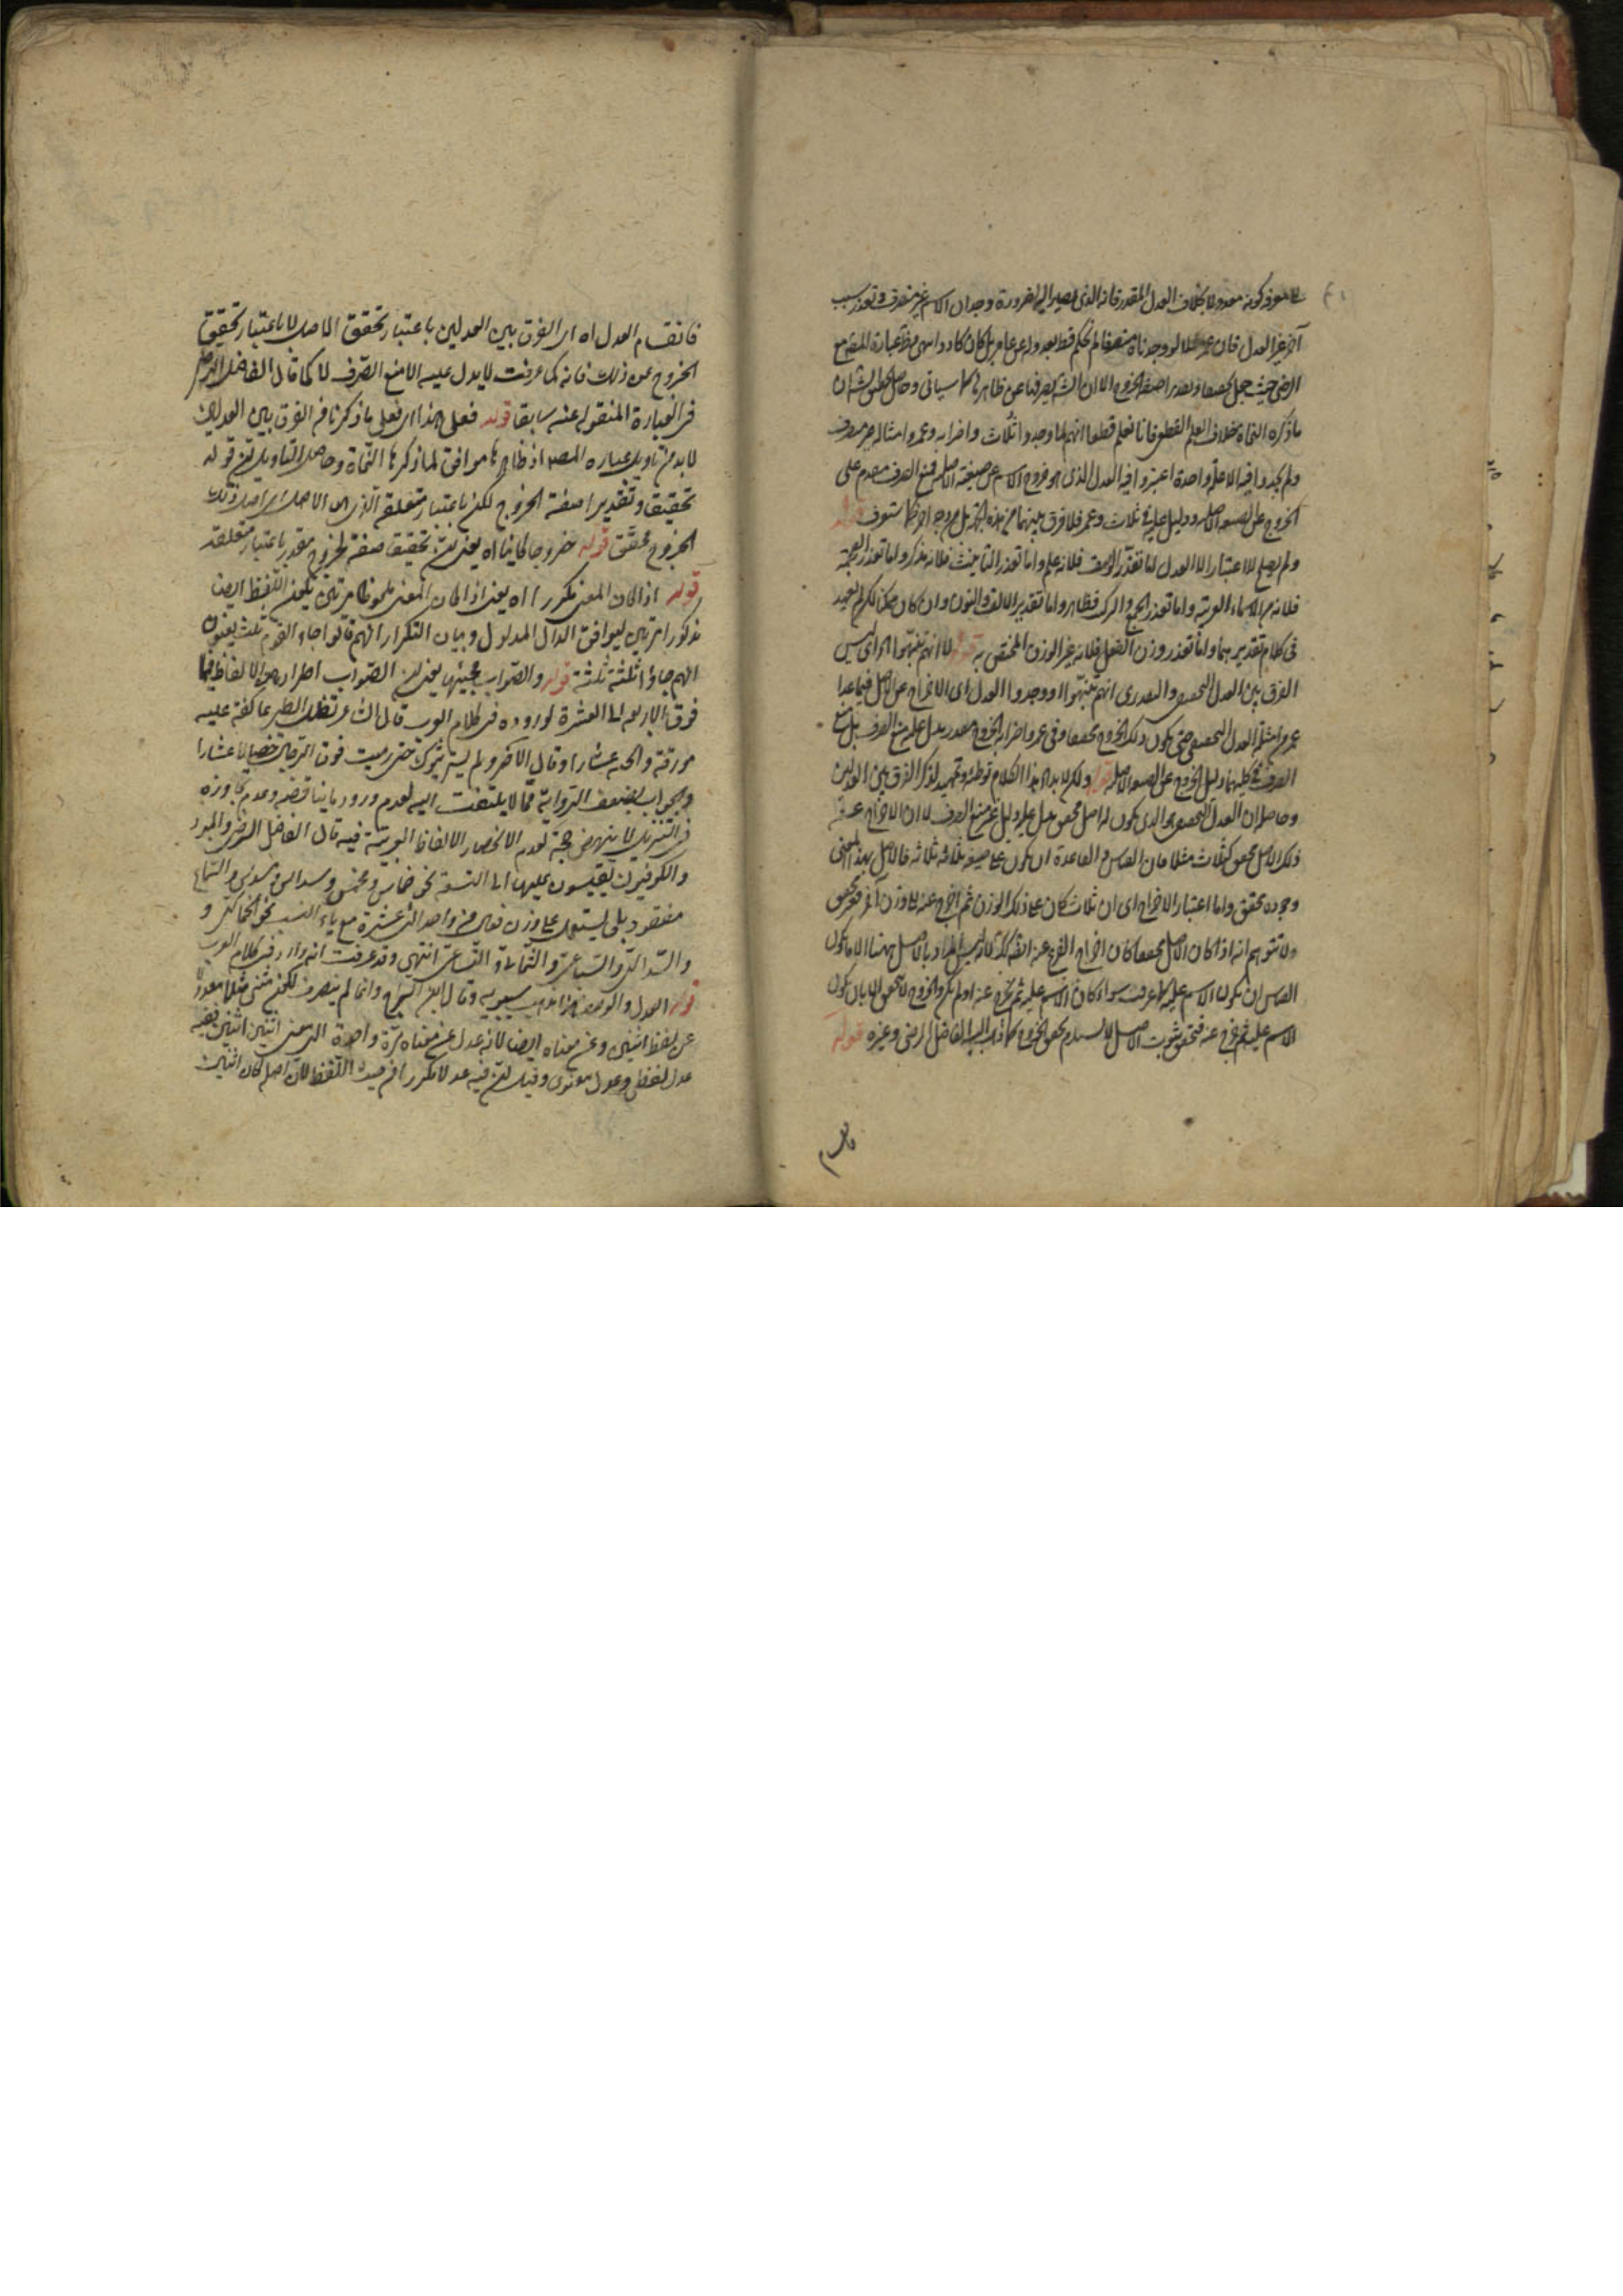 لا معرفة كونه معدولا بخلاف العدل المقدر فانه الذى يصير اليه لضرورة وجدان الاسم غير منصرف وتعذر سبب
آخر غير العدل فان عمر مثلا لو وجدناه منصرفا لم نحكم قط بعدوله عن عامر بل كان كادد
الرضى حيث جعل تحقيقا وتقديرا صفة الخروج الا ان الشارح صرفها عن ظاهرها كما سيأتى وحاصل
ما ذكره النحاة بخلاف العلم القطعى فانا نعلم قطعا انهم لما وجدوا ثلاث واضرابه وعمر وامثاله غير منصرف
ولم يجدوا فيه الا علة واحدة اعتبروا فيه العدل الذى هو خروج الاسم عن صيغته الاصلية فمنع الصرف مقدم على
الخروج عن الصيغة الاصلية ودليل عليه فى ثلاث وعمر فلا فرق بينهما من هذه الجهة بل من وجه آخر كما ستعرف قوله
ولم يصلح للاعتبار الا العدل اما تعذر الوصف فلانه علم واما تعذر التأنيث فلانه مذكر واما تعذر العجمة
فلانه من الاسماء العربية واما تعذر الجمع والتركيب فظاهر واما تقدير الالف والنون وان كان ممكنا لكن لم يعهد
فى كلام تقديرهما واما تعذر وزن الفعل فلانه غير الوزن المختص به قوله لا انهم تنبهوا اه اى ليس
الفرق بين العدل التحقيقى والتقديرى انهم تنبهوا ووجدوا العدل اى الاخراج عن الاصل فيما عدا
عمر من امثلة العدل التحقيقى حتى يكون ذلك الخروج محققا وفى عمر واضرابه الخروج مقدر يدل عليه منع الصرف بل منع
الصرف فى كليهما دليل الخروج عن الصيغة الاصلية قوله ولكن لا بد اه هذا الكلام توطئة وتمهيد لذكر الفرق بين العدلين
وحاصله ان العدل التحقيقى هو الذى يكون له اصل محقق يدل عليه دليل غير منع الصرف لا ان الاخراج عن
ذلك الاصل محقق كثلاث مثلا فان القياس والقاعدة ان يكون على صيغة ثلاثة ثلاثة فالاصل بهذا المعنى
وجوده محقق واما اعتبار الاخراج اى ان ثلاث كان على ذلك الوزن ثم اخرج عنه على وزن آخر فغير محقق
ولا تتوهم انه اذا كان الاصل محققا كان اخراج الفرع عنه ايضا كذلك لانه ليس المراد بالاصل ههنا الا ما يكون
القياس ان يكون الاسم عليه كما عرفت سواء كان الاسم عليه ثم يخرج عنه او لم يكن والخروج لا يتحقق الا بان يكون
الاسم عليه ثم يخرج عنه فتحقق ثبوت الاصل لا يستلزم تحقق الخروج كما ذهب اليه الفاضل الرضى وغيره قوله
فانقسام
فانقسام العدل اه اى الفرق بين العدلين باعتبار تحقق الاصل لا باعتبار تحقيق
الخروج عن ذلك فانه كما عرفت لا يدل عليه الا منع الصرف لا كما قال الفاضل الرضى
فى العبارة المنقولة عنه سابقا قوله فعلى هذا اى فعلى ما ذكرنا فى الفرق بين العدلين
لا بد من تأويل عبارة المصـ اذ ظاهرها موافق لما ذكرها النحاة وحاصل التأويل ان قوله
تحقيقا وتقديرا صفة الخروج لكن باعتبار متعلقه الذى هو الاصل اى اصل ذلك
الخروج محقق قوله خروجا كائنا اه يعنى ان تحقيقا صفة لخروج مقدر باعتبار متعلقه
قوله اذا كان المعنى مكررا اه يعنى اذا كان المعنى ملحوظا مرتين يكون اللفظ ايضا
مذكورا مرتين ليوافق الدال المدلول وبيان التكرار انهم قالوا جاء القوم ثلث يعنون
انهم جاؤا ثلثة ثلثة قوله والصواب مجيئها يعنى ان الصواب اطراد هذه الالفاظ فيما
فوق الاربعة الى العشرة لوروده فى كلام العرب قال الشاعر تظل الطير عاكفة عليه
وقال الاخر ولم يستريثوك حتى رميت فوق الرجال خصالا عشارا
والجواب بضعف الرواية مما لا يلتفت اليه لعدم ورود ما يناقضه وعدم تجاوزه
فى التنزيل لا ينهض حجة لعدم الانحصار الالفاظ العربية فيه قال الفاضل الرضى والمبرد
والكوفيون يقيسون عليها الى التسعة نحو خماس ومخمس وسداس ومسدس والسماع
مفقود بلى يستعمل على وزن فعال من واحد الى عشرة مع ياء النسب نحو الخماسى و
والسداسى والسباعى والثمانى والتساعى انتهى وقد عرفت انه وارد فى كلام العرب
قوله العدل والوصف هذا مذهب سيبويه وقال ابن السراج وانما لم ينصرف لكون مثنى مثلا معدولا
عن لفظ اثنين وعن معناه ايضا لانه عدل عن معناه مرة واحدة الى معنى اثنين اثنين ففيه
عدل لفظى وعدل معنوى وقيل ان فيه عدلا مكررا من حيث اللفظ لان اصله كان اثنين